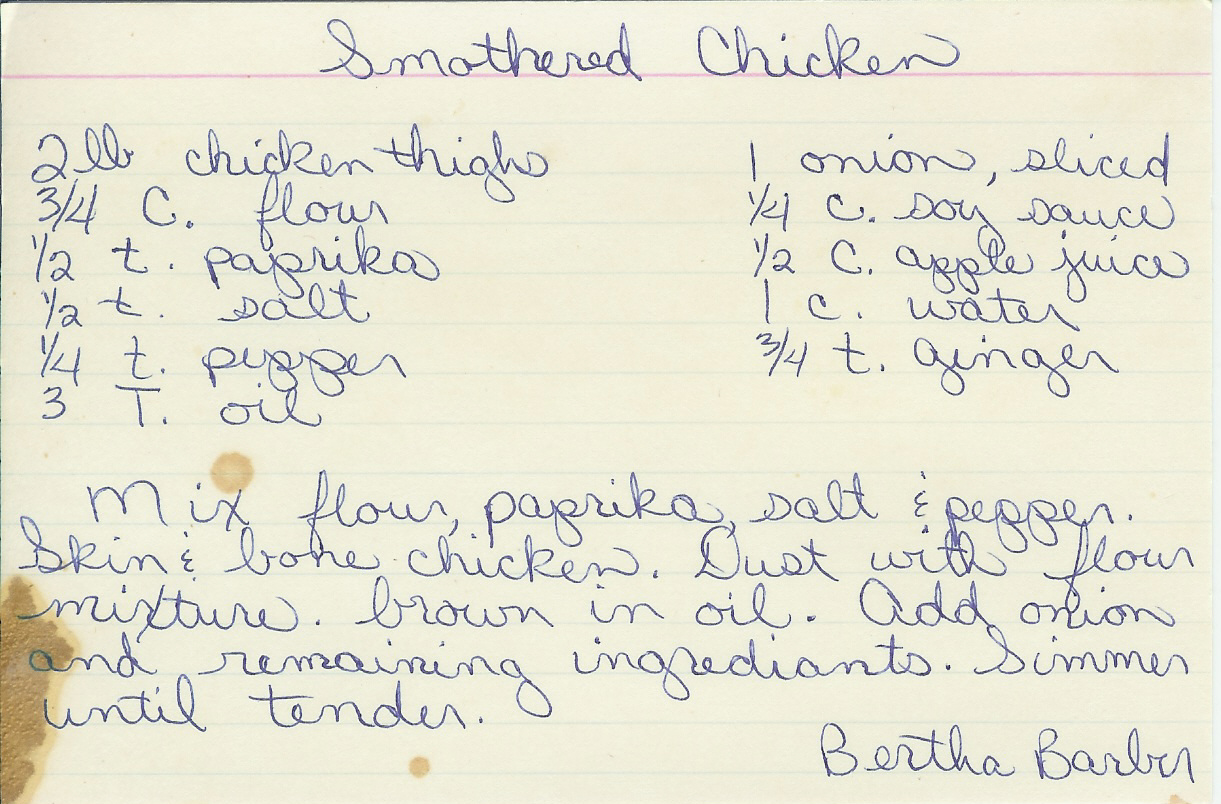 Smothered Chicken
2 lb chicken thighs
3/4 C. flour
1/2 t. paprika
1/2 t. salt
1/4 t. pepper
3 T. oil
1 onion, sliced
1/4 c. soy sauce
1/2 C. apple juice
1 c. water
3/4 t. ginger
Mix flour, paprika, salt & pepper.
Skin & bone chicken. Dust with flour
mixture. brown in oil. Add onion
and remaining ingrediants. Simmer
until tender.
Bertha Barber